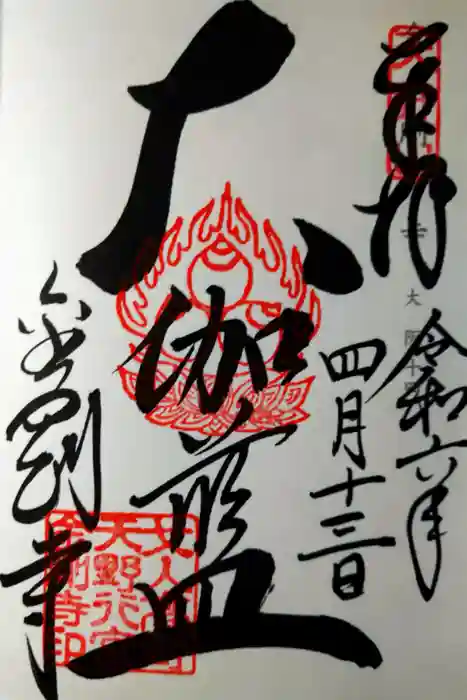 奉拝
令和六年
四月十三日
大伽藍
金剛寺
天野行宮
金剛寺印